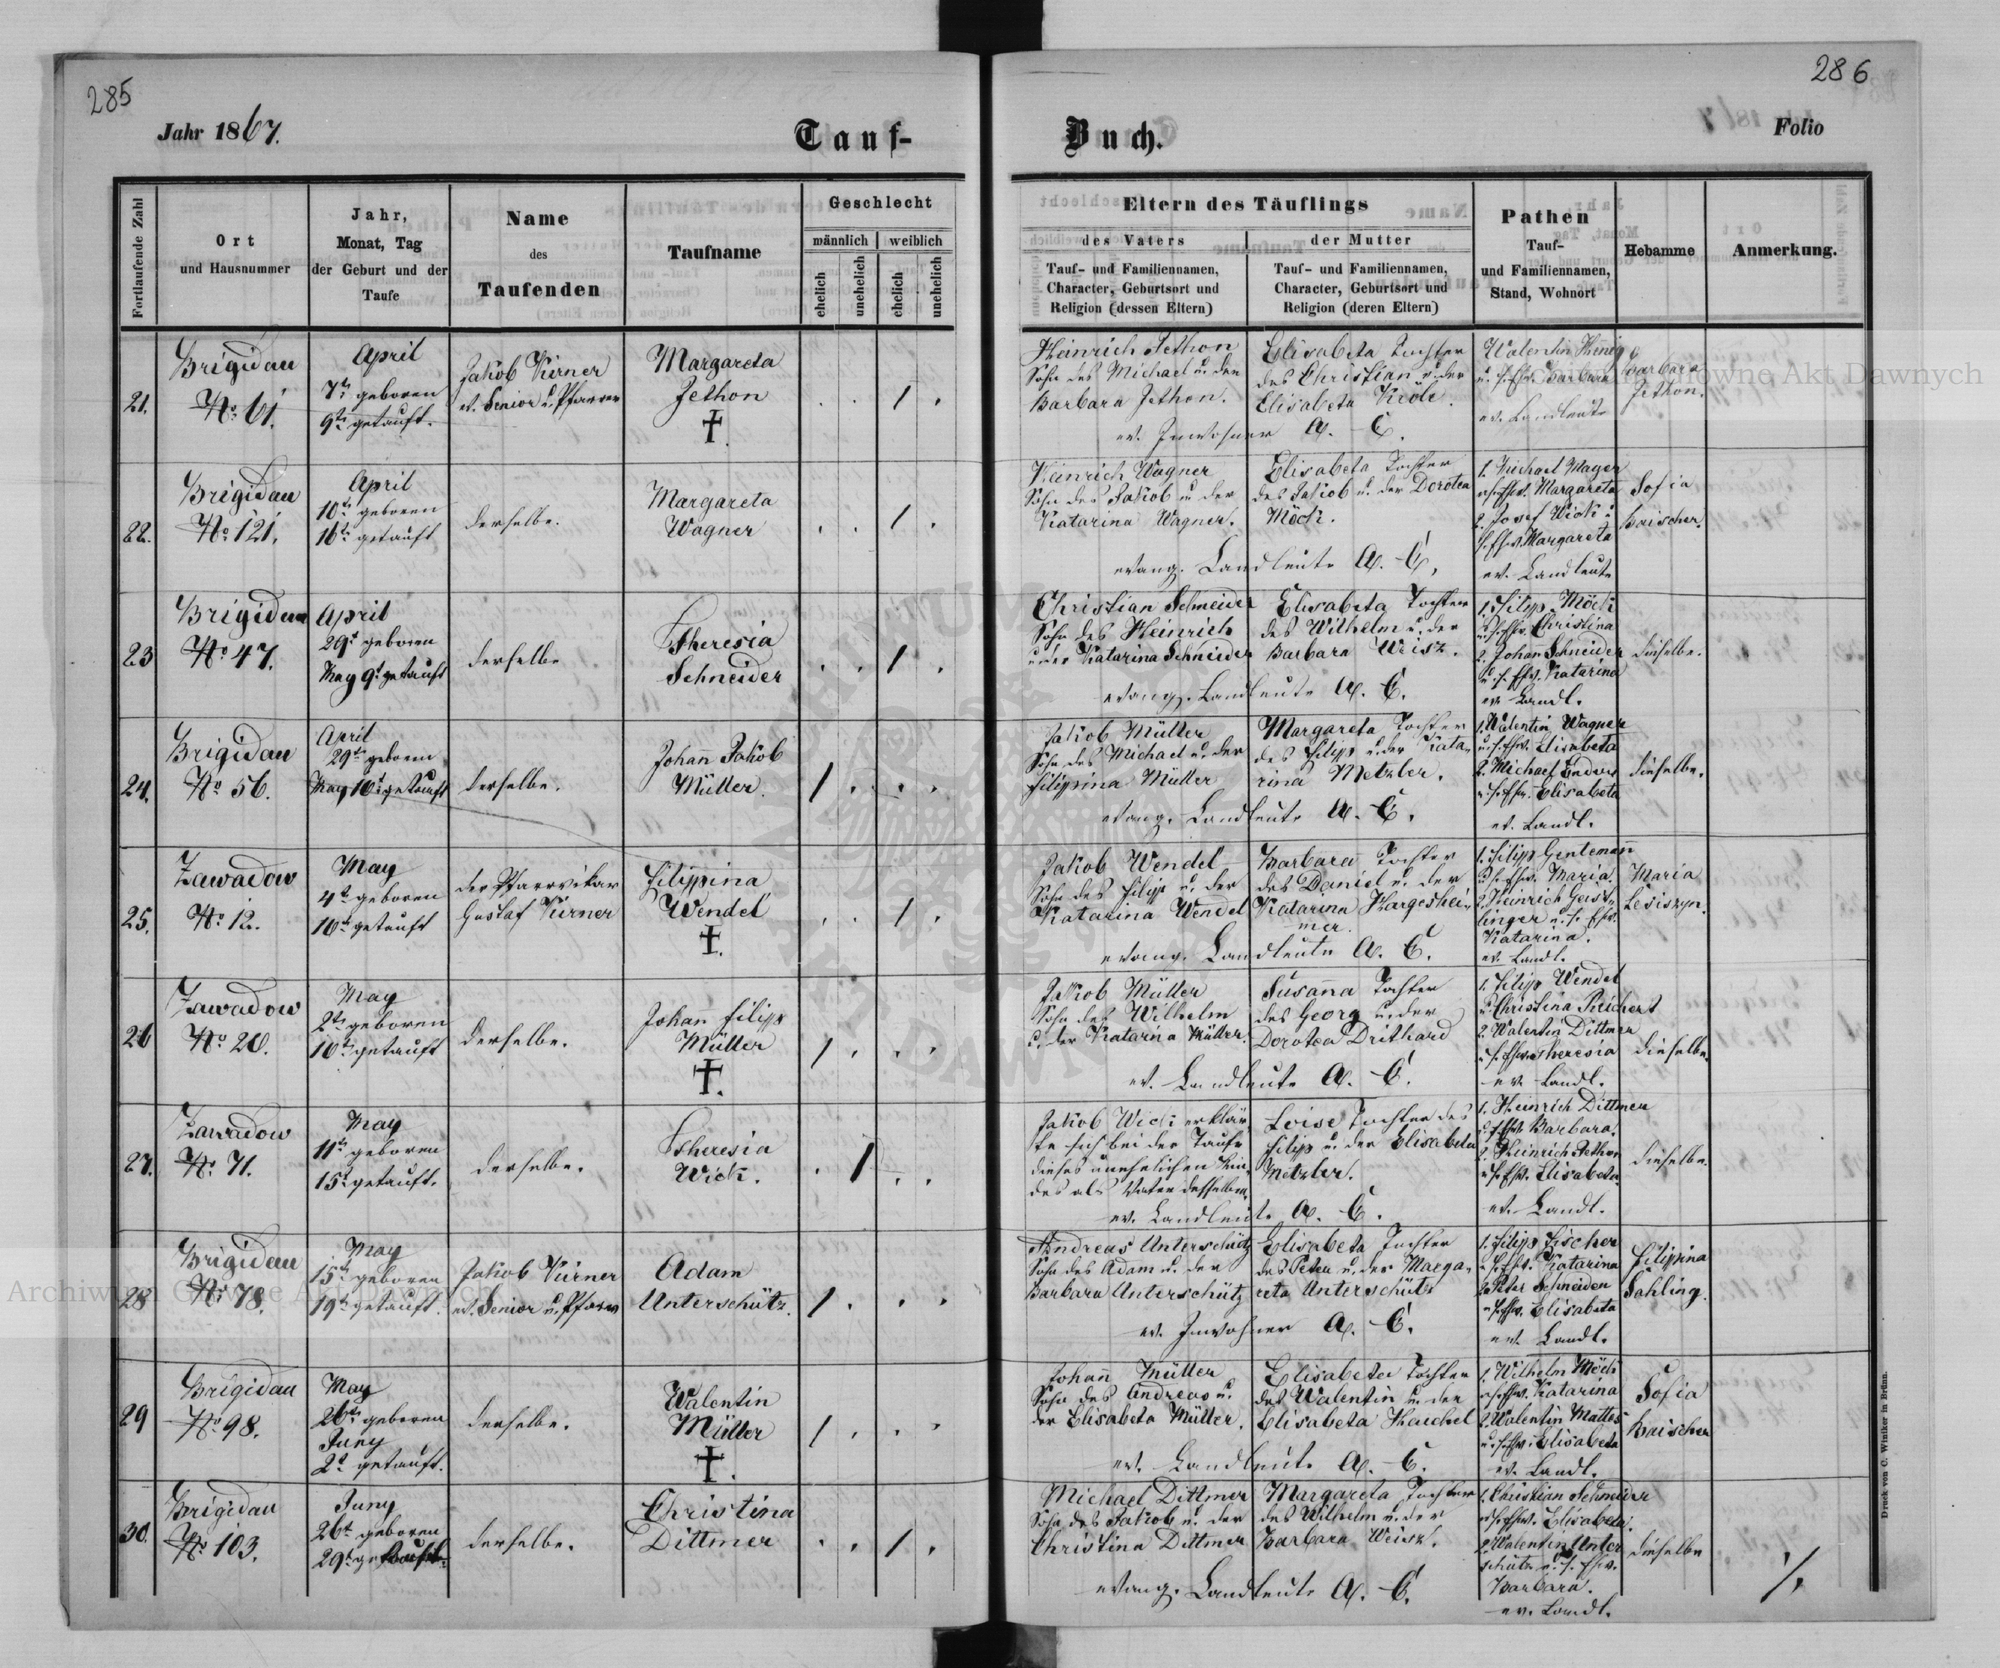 285
286
Jahr 1867.
Tauf-
Buch.
Folio
Fortlaufende Zahl
Ort
und Hausnummer
Jahr,
Monat, Tag
der Geburt und der
Taufe
Name
des
Taufenden
Taufname
Geschlecht
männlich
weiblich
ehelich
unehelich
ehelich
unehelich
Eltern des Täuflings
des Vaters
Tauf- und Familiennamen,
Character, Geburtsort und
Religion (dessen Eltern)
der Mutter
Tauf- und Familiennamen,
Character, Geburtsort und
Religion (deren Eltern)
Pathen
Tauf-
und Familiennamen,
Stand, Wohnort
Hebamme
Anmerkung.
21.
Brigidau
No. 61.
April
7t. geboren
9t. getauft.
Jakob Kirner
ev. Senior u. Pfarrer
Margareta
Jethon
†.
Heinrich Jethon
Sohn des Michael u. der
Barbara Jethon.
Elisabeta Tochter
des Christian u. der
Elisabeta
ev. Inwohner A. C.
Walentin
Barbara
ev. Landleute
Barbara
Jethon.
22.
Brigidau
No. 121.
April
10t. geboren
16t. getauft
derselbe.
Margareta
Wagner
Heinrich Wagner
Sohn des Jakob u. der
Katarina Wagner.
Elisabeta Tochter
des Jakob u. der Dorotea
Möck.
evang. Landleute A. C.
1. Michael Mayer
u. s. Ehw. Margareta
2. Josef Wick u.
s. Ehw. Margareta
ev. Landleute
Sofia
Baischer.
23
Brigidau
No. 47.
April
29t. geboren
May 9t. getauft
derselbe
Theresia
Schneider
Christian Schneider
Sohn des Heinrich
u. der Katarina Schneider
Elisabeta Tochter
des Wilhelm u. der
Barbara Weisz.
evang. Landleute A. C.
1. Filip Möck
u. s. Ehw. Christina
2. Johann Schneider
u. s. Ehw. Katarina
ev. Landl.
dieselbe.
24.
Brigidau
No. 56.
April
29t. geboren
May 10t. getauft
derselbe.
Johann Jakob
Müller.
Jakob Müller
Sohn des Michael u. der
Filippina Müller
Margareta Tochter
des Filipp u. der Kata-
rina Metzler.
evang. Landleute A. C.
1. Walentin Wagner
u. s. Ehw. Elisabeta
2. Michael Enders
u. s. Ehw. Elisabeta
ev. Landl.
dieselbe.
25.
Zawadow
No. 12.
May
4t. geboren
10t. getauft
der Pfarrvikar
Gustaf Kirner
Filippina
Wendel
†.
Jakob Wendel
Sohn des Filip u. der
Katarina Wendel
Barbara Tochter
des Daniel u. der
Katarina Hargeshei-
mer.
evang. Landleute A. C.
1. Filipp Gentemann
u. s. Ehw. Maria.
2. Heinrich Geist-
linger u. s. Ehw.
Katarina.
ev. Landl.
Maria
26
Zawadow
No. 20.
May
2t. geboren
10t. getauft
derselbe.
Johan Filipp
Müller
†.
Jakob Müller
Sohn des Wilhelm
u. der Katarina Müller.
Susanna Tochter
des Georg u. der
Dorotea Drithard
ev. Landleute A. C.
1. Filip Wendel
u. Christina Reichert
2. Walentin Dittmer
u. s. Ehw. Theresia
ev. Landl.
dieselbe.
27.
Zawadow
No. 71.
May
11t. geboren
15t. getauft.
derselbe.
Theresia
Wick.
Jakob Wick erklär-
te sich bei der Taufe
dieses unehelichen Kin-
des als Vater desselben.
Loise Tochter des
Filipp u. der Elisabeta
Metzler.
ev. Landleute A. C.
1. Heinrich Dittmer
u. s. Ehw. Barbara.
2. Heinrich Jethon
u. s. Ehw. Elisabeta.
ev. Landl.
dieselbe.
28
Brigidau
No. 78.
May
15t. geboren
19t. getauft.
Jakob Kirner
ev. Senior u. Pfarrer
Adam
Unterschütz.
Andreas Unterschütz
Sohn des Adam u. der
Barbara Unterschütz
Elisabeta Tochter
des Peter u. der Marga-
reta Unterschütz
ev. Inwohner A. C.
1. Filip Fischer
u. s. Ehw. Katarina
2. Peter Schneider
u. s. Ehw. Elisabeta
ev. Landl.
Filippina
Sahling.
29
Brigidau
No. 98.
May
26t. geboren
Juny
2t. getauft.
derselbe.
Walentin
Müller
†.
Johann Müller
Sohn des Andreas u.
der Elisabeta Müller.
Elisabeta Tochter
des Walentin u. der
Elisabeta Haichel
ev. Landleute A. C.
1. Wilhelm Möck
u. s. Ehw. Katarina
2. Walentin Mattes
u. s. Ehw. Elisabeta
ev. Landl.
Sofia
Baischer
30.
Brigidau
No. 103.
Juny
26t. geboren
29t. getauft.
derselbe.
Christina
Dittmer
Michael Dittmer
Sohn des Jakob u. der
Christina Dittmer
Margareta Tochter
des Wilhelm u. der
Barbara Weisz.
evang. Landleute A. C.
1. Christian Schneider
u. s. Ehw. Elisabeta.
2. Walentin Unter
schütz u. s. Ehw.
Barbara.
ev. Landl.
dieselbe
Druck von C. Winiker in Brünn.
Archiwum Główne Akt Dawnych
Archiwum Główne Akt Dawnych